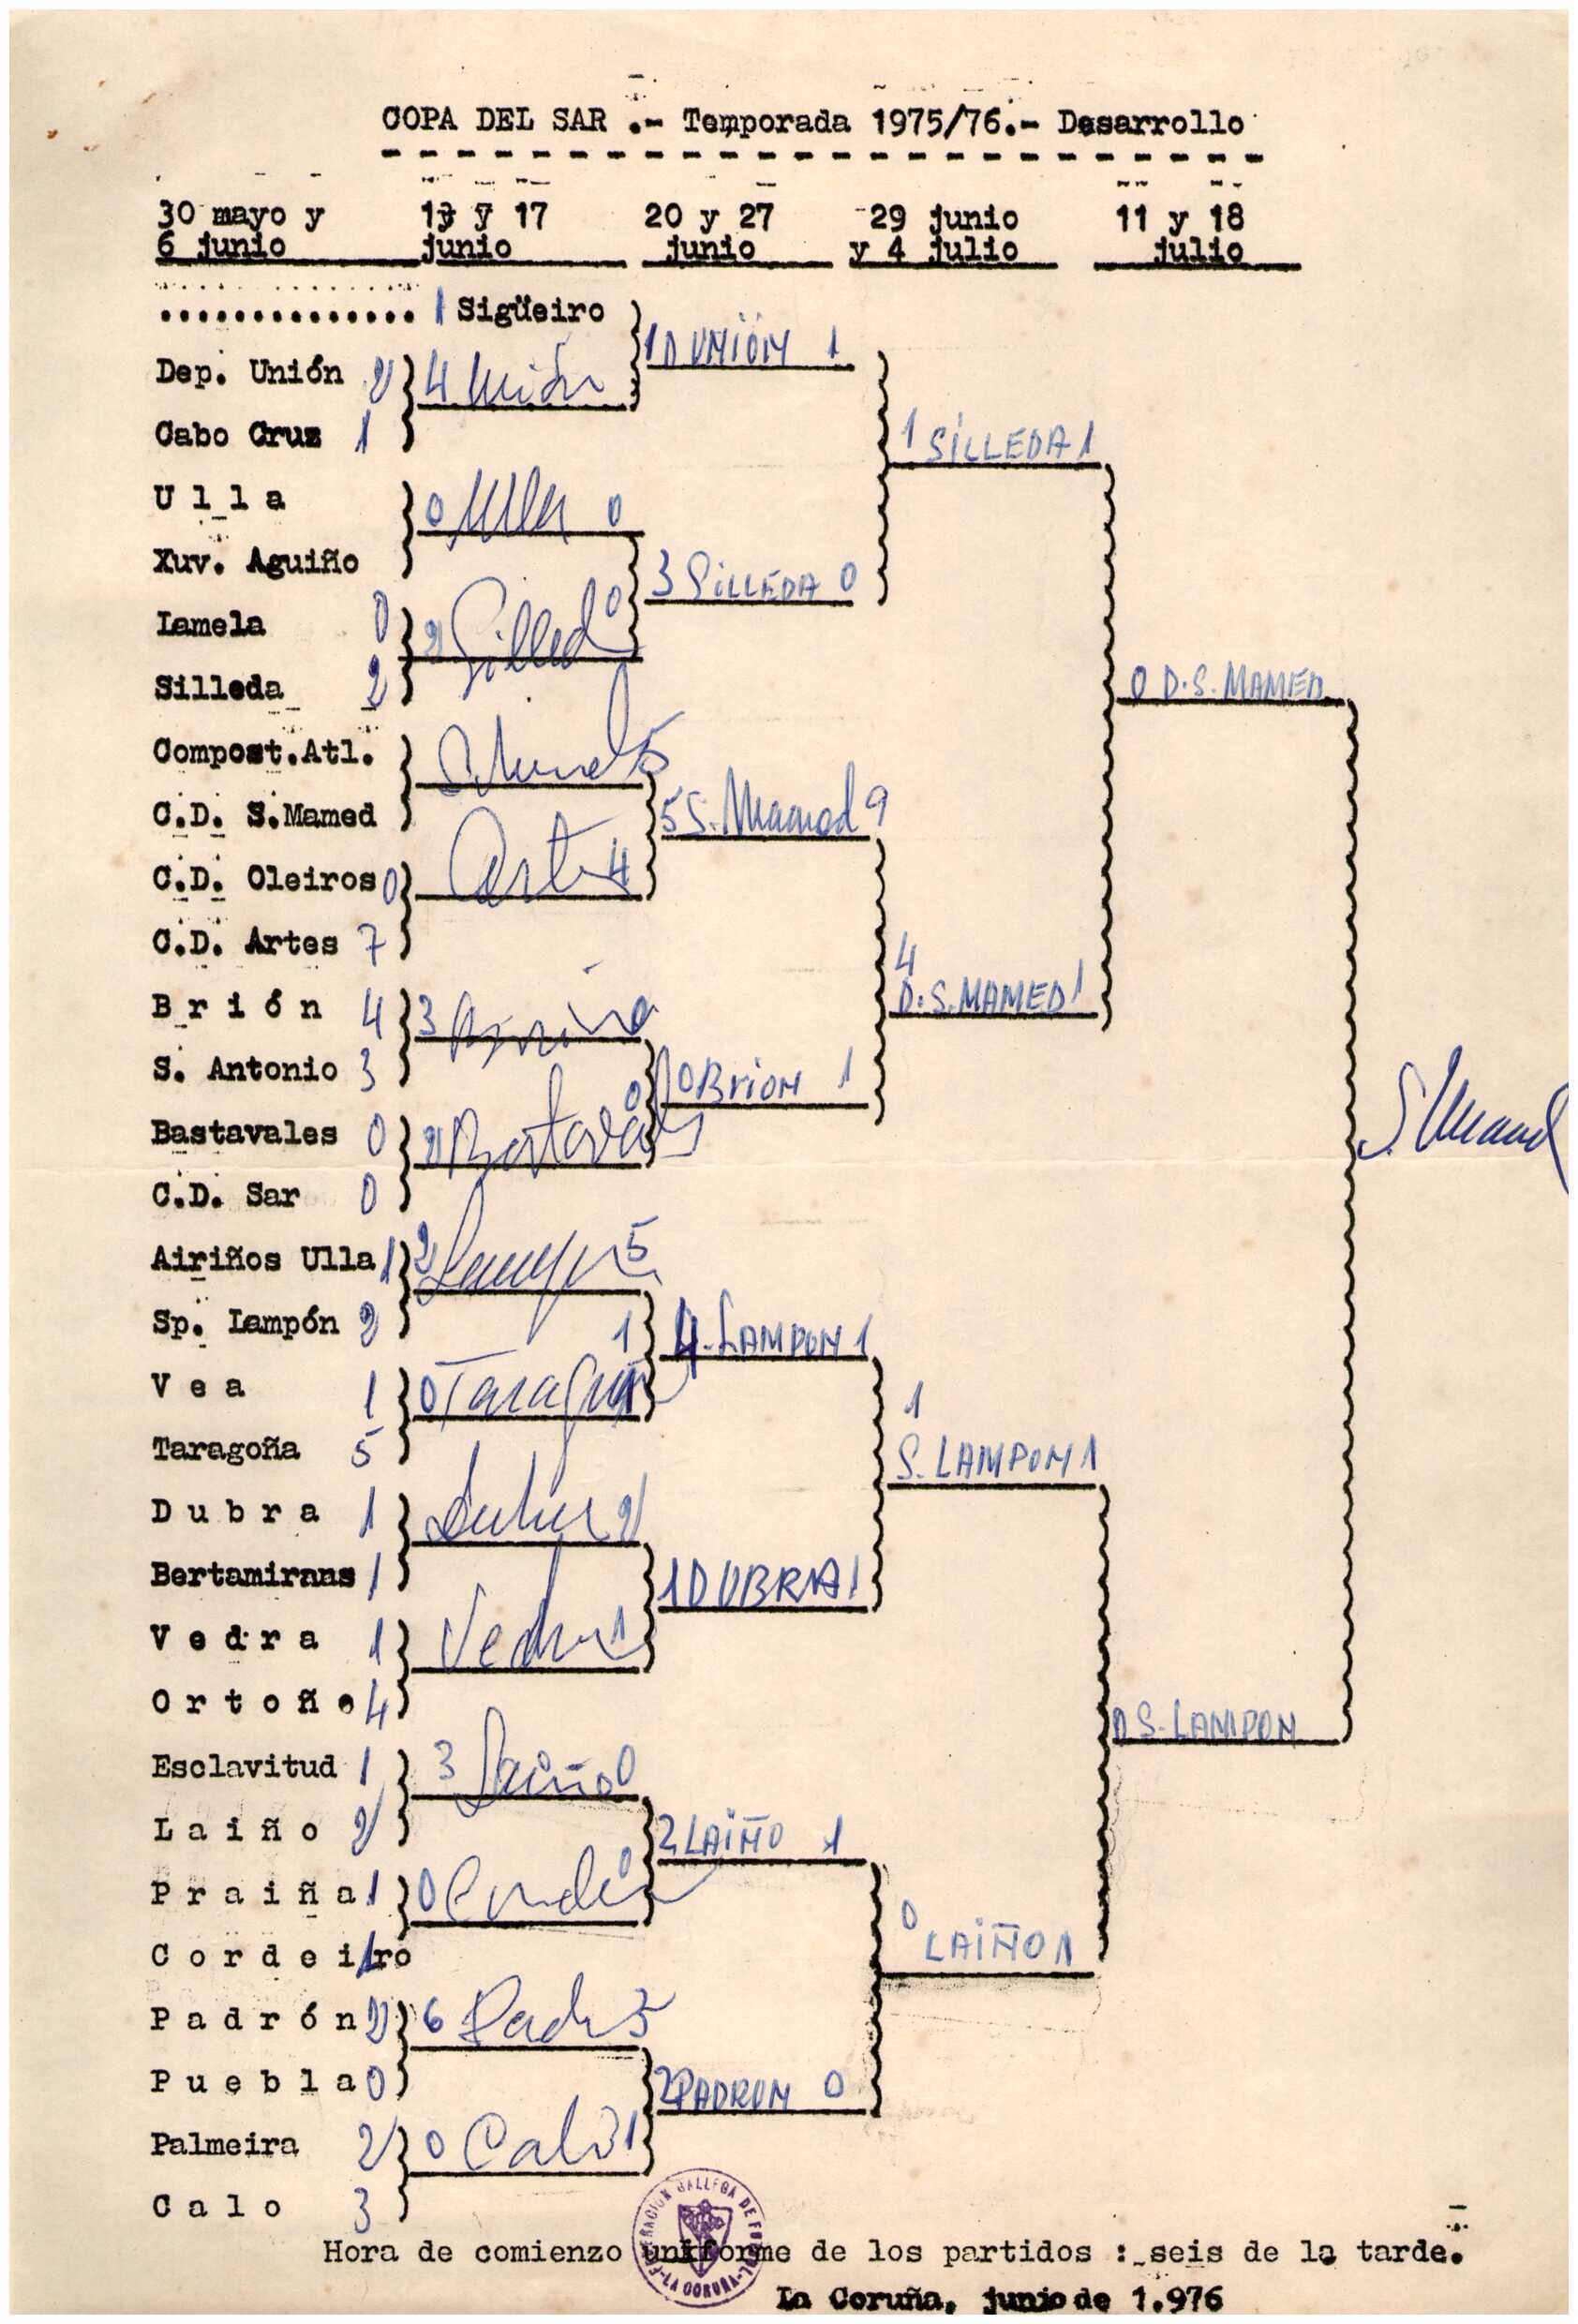 COPA DEL SAR .- Temporada 1975/76.- Desarrollo
30 mayo y 6 junio
13 y 17 junio
20 y 27 junio
29 junio y 4 julio
11 y 18 julio
.............. 1 Sigüeiro
1 D UNIÓN 1
Dep. Unión 2
4 Unión
Cabo Cruz 1
1 SILLEDA 1
U l l a
0 Ulla 0
Xuv. Aguiño
3 SILLEDA 0
Lamela 0
2 Silleda 0
Silleda 2
0 D.S. MAMED
Compost.Atl.
S. Mamed 5
C.D. S.Mamed
5 S. Mamed 9
C.D. Oleiros 0
Artes 4
C.D. Artes 7
4 D.S. MAMED 1
B r i ó n 4
3
S. Antonio 3
0 BRION 1
S. Mamed
Bastavales 0
2 Bastavales 0
C.D. Sar 0
Airiños Ulla 1
2 5
Sp. Lampón 2
4 S. LAMPON 1
V e a 1
0 Taragoña 1
Taragoña 5
1 S. LAMPON 1
D u b r a 1
Dubra 2
Bertamirans 1
1 DUBRA 1
V e d r a 1
Vedra 1
O r t o ñ o 4
0 S. LAMPON
Esclavitud 1
3 Laiño 0
L a i ñ o 2
2 LAIÑO 1
P r a i ñ a 1
0 0
C o r d e i r o 1
0 LAIÑO 1
P a d r ó n 2
6 Padrón 3
P u e b l a 0
2 PADRON 0
Palmeira 2
0 Calo 1
C a l o 3
FEDERACION GALLEGA DE FUTBOL -LA CORUÑA-
Hora de comienzo uniforme de los partidos : seis de la tarde.
La Coruña, junio de 1.976